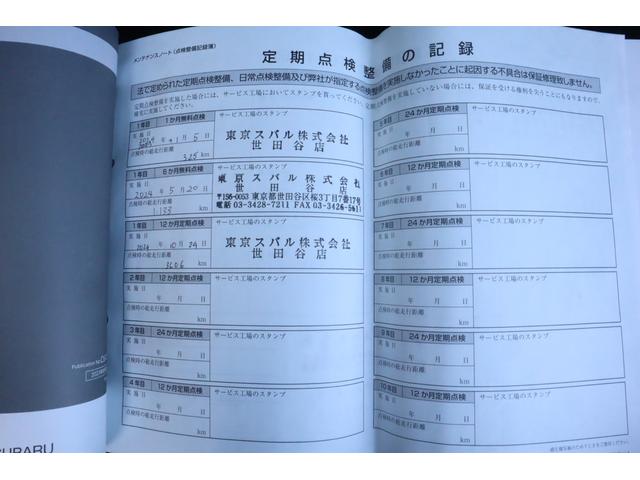 メンテナンスノート(点検整備記録簿)
定期点検整備の記録
法で定められた定期点検整備、日常点検整備及び弊社が指定する点検整備を実施しなかったことに起因する不具合は保証修理致しません。
定期点検整備を実施した場合には、サービス工場においてスタンプを貰ってください。
1年目 1か月無料点検 サービス工場のスタンプ
実施日
2024年 1月 5日
点検時の総走行距離
325 km
東京スバル株式会社
世田谷店
1年目 6か月無料点検 サービス工場のスタンプ
実施日
2024年 5月 20日
点検時の総走行距離
1133 km
東京スバル株式会社
世田谷店
〒156-0053 東京都世田谷区桜3丁目7番17号
電話 03-3428-7211 FAX 03-3426-5611
1年目 12か月定期点検 サービス工場のスタンプ
実施日
2024年 10月 24日
点検時の総走行距離
3606 km
東京スバル株式会社
世田谷店
2年目 12か月定期点検 サービス工場のスタンプ
実施日
年 月 日
点検時の総走行距離
km
3年目 24か月定期点検 サービス工場のスタンプ
実施日
年 月 日
点検時の総走行距離
km
4年目 12か月定期点検 サービス工場のスタンプ
実施日
年 月 日
点検時の総走行距離
km
5年目 24か月定期点検 サービス工場のスタンプ
実施日
年 月 日
点検時の総走行距離
km
6年目 12か月定期点検 サービス工場のスタンプ
実施日
年 月 日
点検時の総走行距離
km
7年目 24か月定期点検 サービス工場のスタンプ
実施日
年 月 日
点検時の総走行距離
km
8年目 12か月定期点検 サービス工場のスタンプ
実施日
年 月 日
点検時の総走行距離
km
9年目 24か月定期点検 サービス工場のスタンプ
実施日
年 月 日
点検時の総走行距離
km
10年目 12か月定期点検 サービス工場のスタンプ
実施日
年 月 日
点検時の総走行距離
km
Publication No.
SUBARU